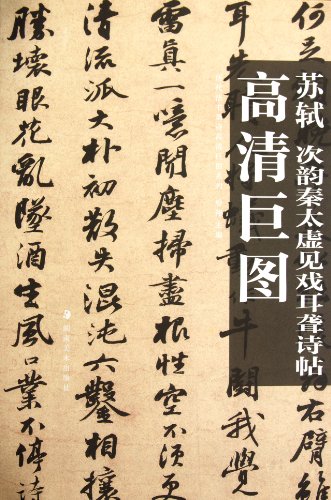 苏轼 次韵秦太虚见戏耳聋诗帖
高清巨图
何足
右臂
耳先
牛鬪我覺
雷真一噫聞塵掃盡根性空不須更
清流派大朴初散失混沌六鑿相攘
勝壞眼花亂墜酒生風口業不停詩
湖南美术出版社